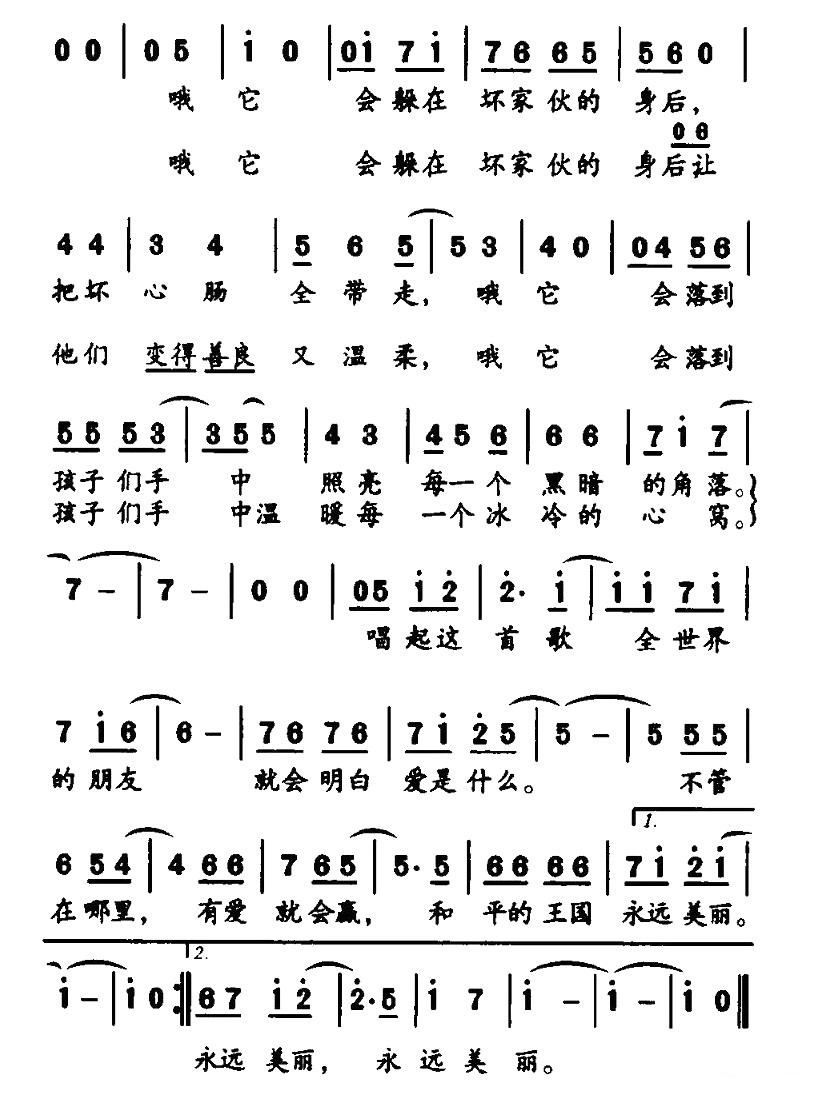 0 0 | 0 5 | i 0 | 0 i 7 i | 7 6 6 5 | 5 6 0 |
哦 它 会 躲 在 坏 家 伙 的 身 后，
0 6
哦 它 会 躲 在 坏 家 伙 的 身 后 让
4 4 | 3 4 | 5 6 5 | 5 3 | 4 0 | 0 4 5 6 |
把 坏 心 肠 全 带 走， 哦 它 会 落 到
他 们 变 得 善 良 又 温 柔， 哦 它 会 落 到
5 5 5 3 | 3 5 5 | 4 3 | 4 5 6 | 6 6 | 7 i 7 |
孩 子 们 手 中 照 亮 每 一 个 黑 暗 的 角 落。
孩 子 们 手 中 温 暖 每 一 个 冰 冷 的 心 窝。
7 – | 7 – | 0 0 | 0 5 i 2 | 2· i | i i 7 i |
唱 起 这 首 歌 全 世 界
7 i 6 | 6 – | 7 6 7 6 | 7 i 2 5 | 5 – | 5 5 5 |
的 朋 友 就 会 明 白 爱 是 什 么。 不 管
1.
6 5 4 | 4 6 6 | 7 6 5 | 5· 5 | 6 6 6 6 | 7 i 2 i |
在 哪 里， 有 爱 就 会 赢， 和 平 的 王 国 永 远 美 丽。
2.
i – | i 0 :‖ 6 7 i 2 | 2· 5 | i 7 | i – | i – | i 0 ‖
永 远 美 丽， 永 远 美 丽。